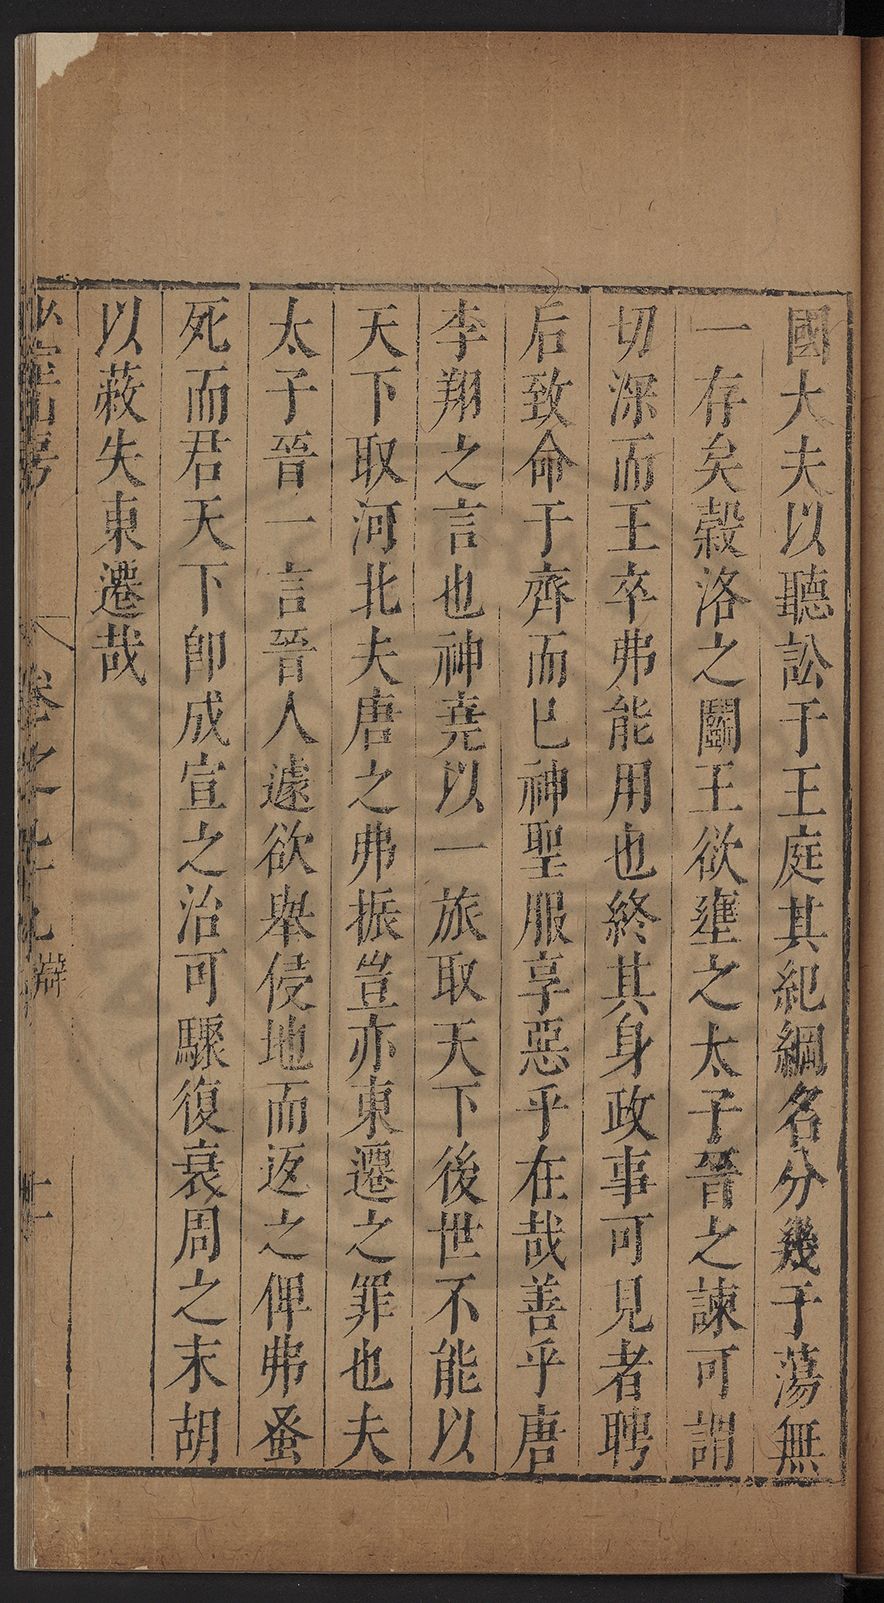 國大夫以聽訟于王庭其紀綱名分幾于蕩無
一存矣榖洛之鬭王欲壅之太子晉之諫可謂
切深而王卒弗能用也終其身政事可見者聘
后致命于齊而已神聖服享惡乎在哉善乎唐
李翔之言也神堯以一旅取天下後世不能以
天下取河北夫唐之弗振豈亦東遷之罪也夫
太子晉一言晉人遽欲舉侵地而返之俾弗蚤
死而君天下卽成宣之治可驟復衰周之末胡
以蔽失東遷哉
卷之十九 辯